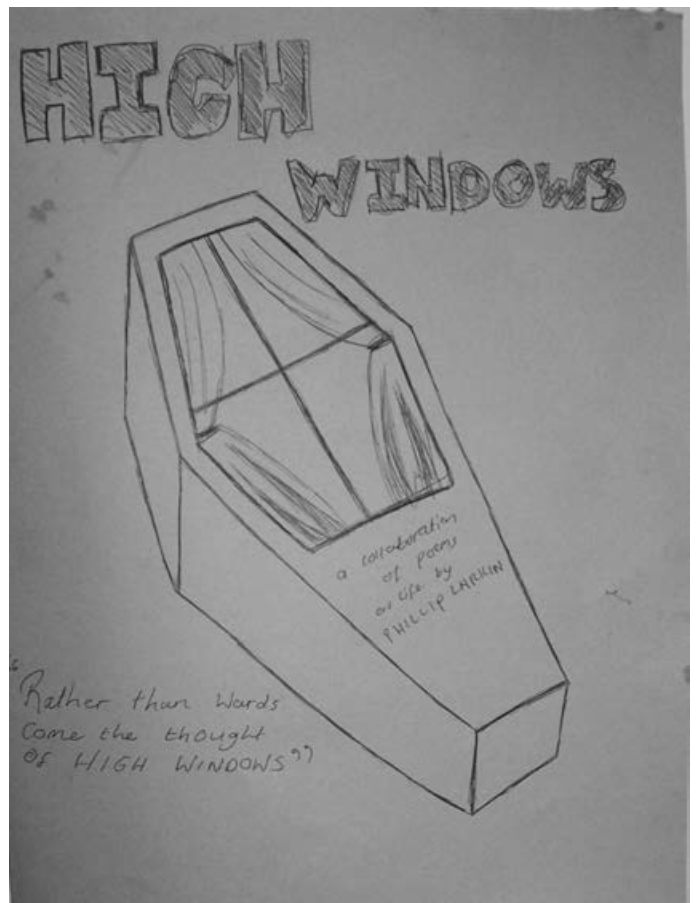 HIGH
WINDOWS
a collaboration
of poems
on life by
PHILLIP LARKIN
"Rather than words
come the thought
of HIGH WINDOWS"